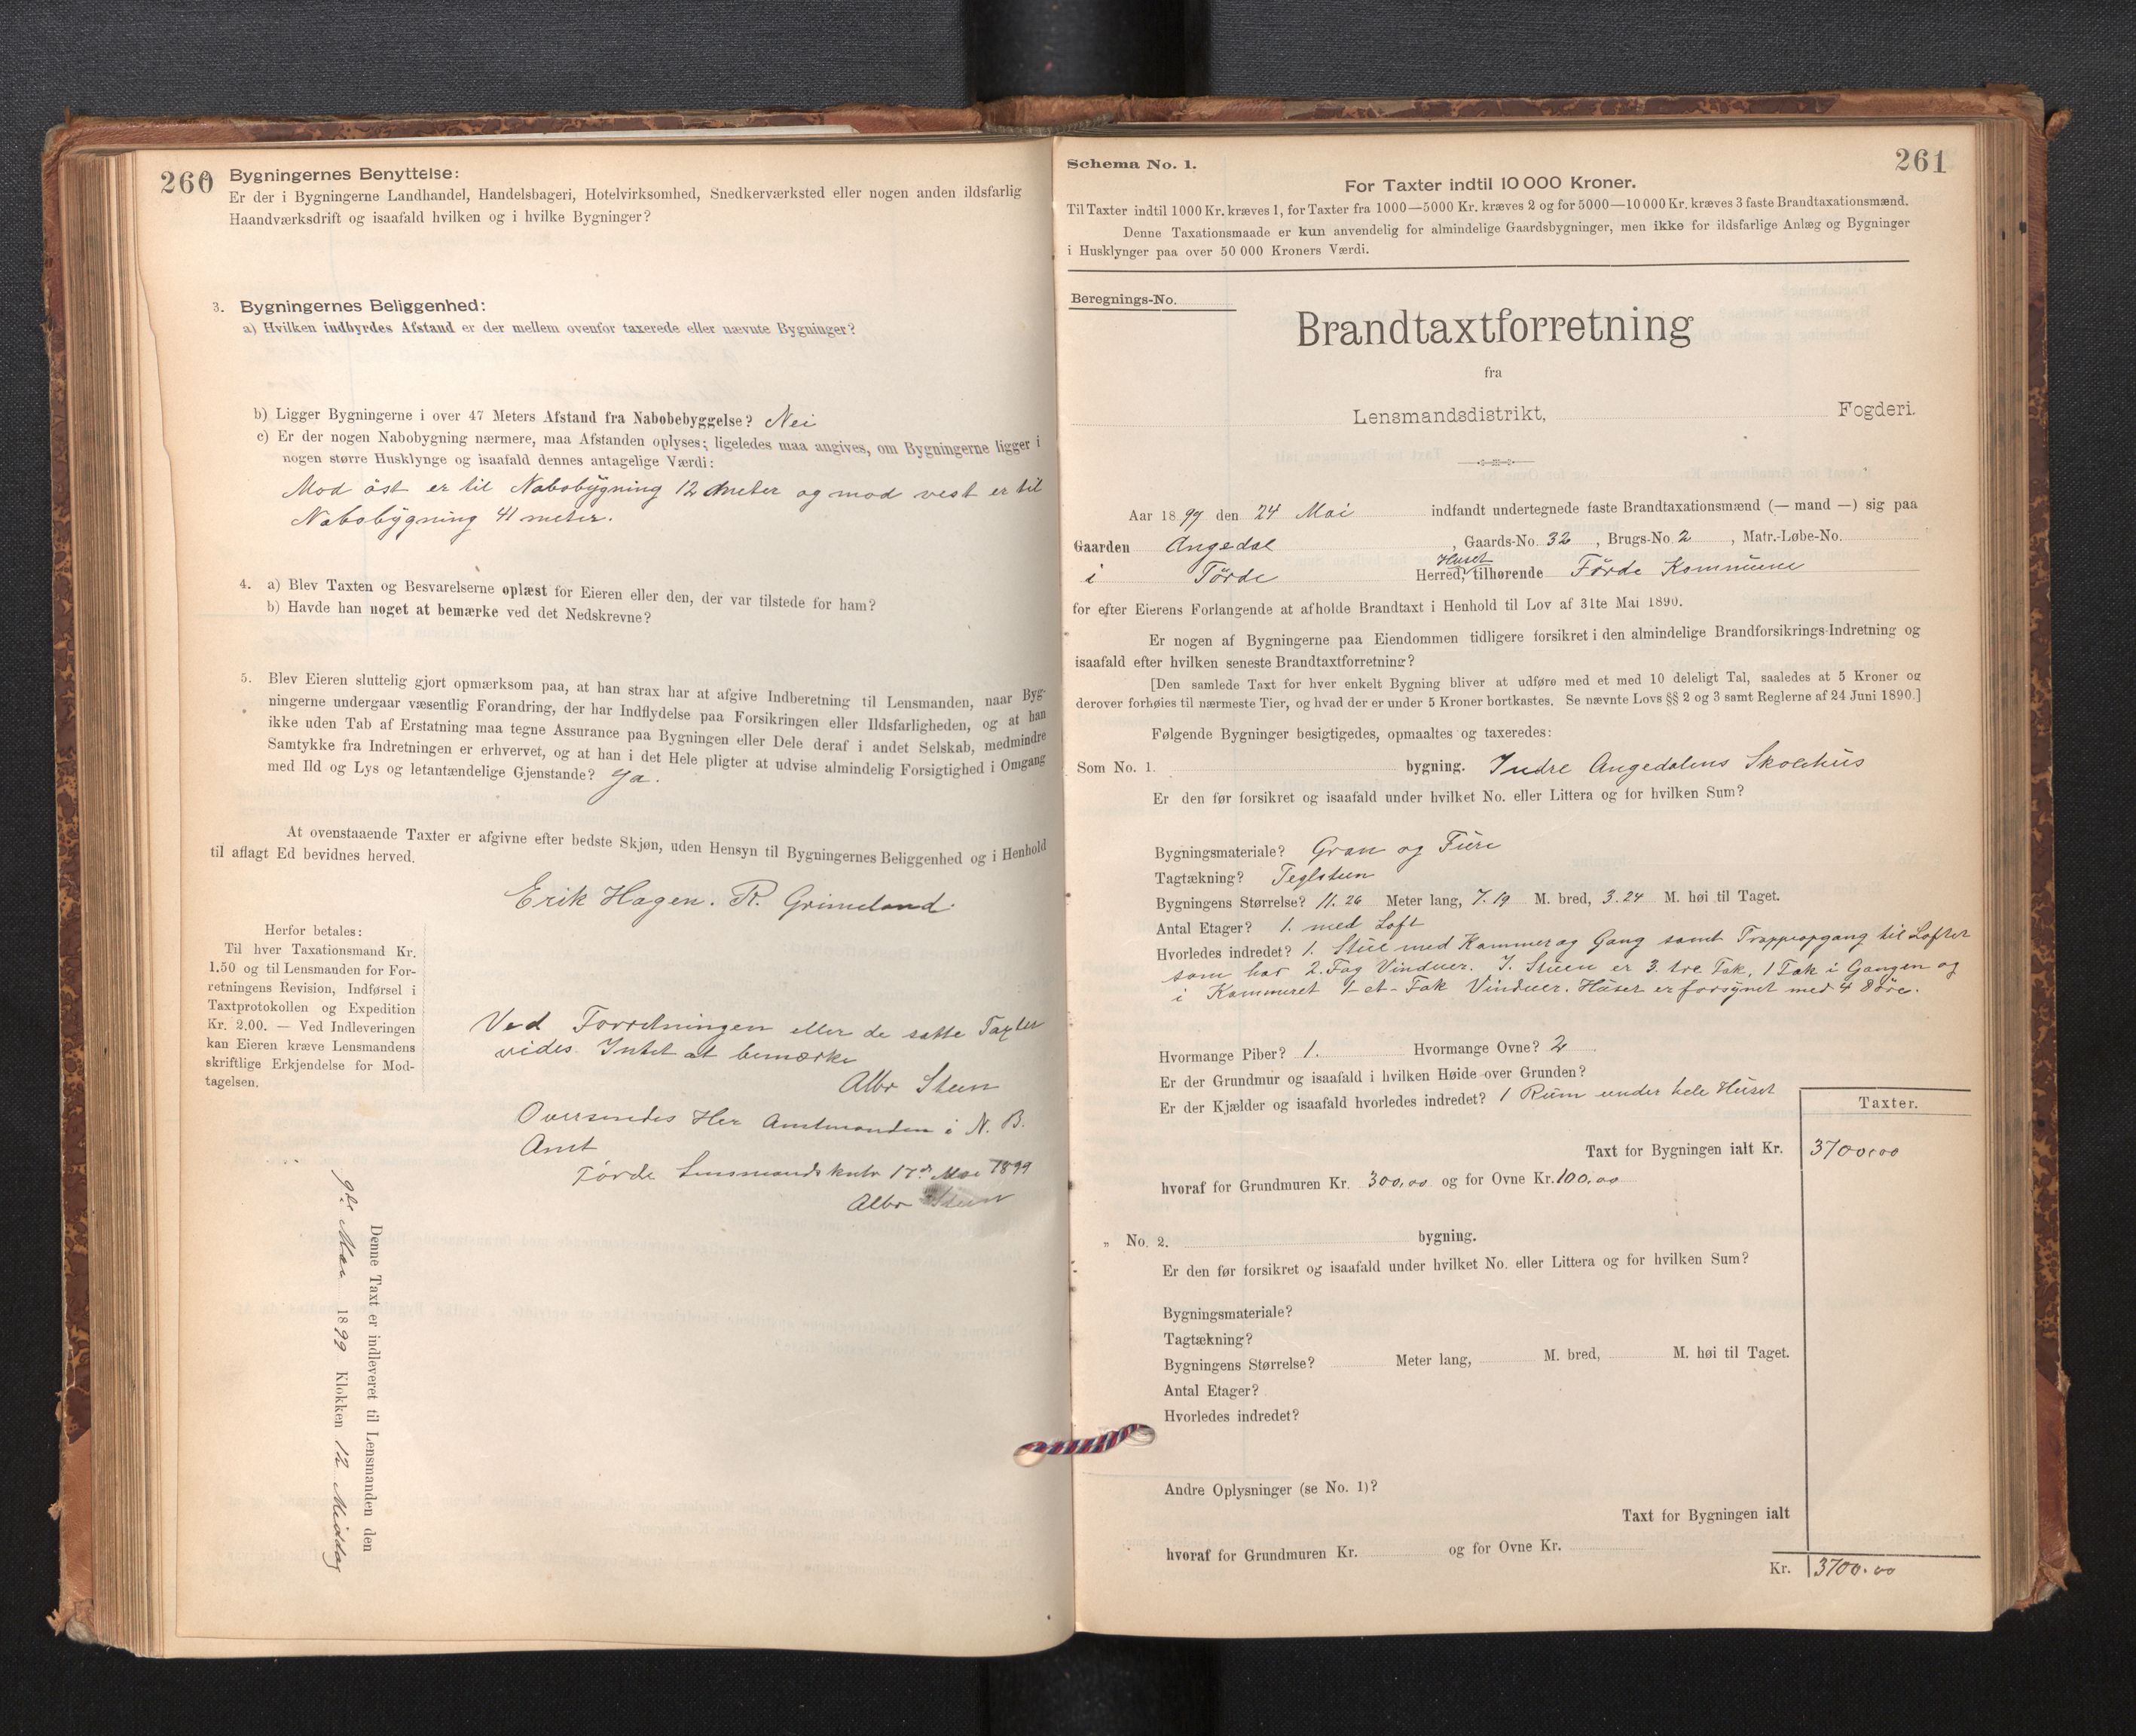 260
Bygningernes Benyttelse:
Er der i Bygningerne Landhandel, Handelsbageri, Hotelvirksomhed, Snedkerværksted eller nogen anden ildsfarlig
Haandværksdrift og isaafald hvilken og i hvilke Bygninger?
3. Bygningernes Beliggenhed:
a) Hvilken indbyrdes Afstand er der mellem ovenfor taxerede eller nævnte Bygninger?
b) Ligger Bygningerne i over 47 Meters Afstand fra Nabobebyggelse? Nei
c) Er der nogen Nabobygning nærmere, maa Afstanden oplyses; ligeledes maa angives, om Bygningerne ligger i
nogen større Husklynge og isaafald dennes antagelige Værdi:
Mod öst er til Nabobygning 12 meter og mod vest er til
Nabobygning 41 meter.
4. a) Blev Taxten og Besvarelserne oplæst for Eieren eller den, der var tilstede for ham?
b) Havde han noget at bemærke ved det Nedskrevne?
5. Blev Eieren sluttelig gjort opmærksom paa, at han strax har at afgive Indberetning til Lensmanden, naar Byg-
ningerne undergaar væsentlig Forandring, der har Indflydelse paa Forsikringen eller Ildsfarligheden, og at han
ikke uden Tab af Erstatning maa tegne Assurance paa Bygningen eller Dele deraf i andet Selskab, medmindre
Samtykke fra Indretningen er erhvervet, og at han i det Hele pligter at udvise almindelig Forsigtighed i Omgang
med Ild og Lys og letantændelige Gjenstande? Ja.
At ovenstaaende Taxter er afgivne efter bedste Skjøn, uden Hensyn til Bygningernes Beliggenhed og i Henhold
til aflagt Ed bevidnes herved.
Erik Hagen. R. Grimeland.
Herfor betales:
Til hver Taxationsmand Kr.
1.50 og til Lensmanden for For-
retningens Revision, Indførsel i
Taxtprotokollen og Expedition
Kr. 2.00. — Ved Indleveringen
kan Eieren kræve Lensmandens
skriftlige Erkjendelse for Mod-
tagelsen.
Ved Forretningen eller de satte Taxter
vides Intet at bemærke
Albr Steen
Oversendes Her Amtmanden i N. B.
Amt
Førde Lensmandskntr 17de Mai 1899
Albr Steen
Denne Taxt er indleveret til Lensmanden den
9de Mai 1899 Klokken 12 Middag
261
Schema No. 1.
For Taxter indtil 10 000 Kroner.
Til Taxter indtil 1000 Kr. kræves 1, for Taxter fra 1000—5000 Kr. kræves 2 og for 5000—10 000 Kr. kræves 3 faste Brandtaxationsmænd.
Denne Taxationsmaade er kun anvendelig for almindelige Gaardsbygninger, men ikke for ildsfarlige Anlæg og Bygninger
i Husklynger paa over 50 000 Kroners Værdi.
Beregnings-No.
Brandtaxtforretning
fra
Lensmandsdistrikt, Fogderi.
Aar 1897 den 24 Mai indfandt undertegnede faste Brandtaxationsmænd (— mand —) sig paa
Gaarden Angedal, Gaards-No. 32, Brugs-No. 2, Matr.-Løbe-No.
Huset
i Förde Herred, tilhørende Förde Kommune
for efter Eierens Forlangende at afholde Brandtaxt i Henhold til Lov af 31te Mai 1890.
Er nogen af Bygningerne paa Eiendommen tidligere forsikret i den almindelige Brandforsikrings-Indretning og
isaafald efter hvilken seneste Brandtaxtforretning?
[Den samlede Taxt for hver enkelt Bygning bliver at udføre med et med 10 deleligt Tal, saaledes at 5 Kroner og
derover forhøies til nærmeste Tier, og hvad der er under 5 Kroner bortkastes. Se nævnte Lovs §§ 2 og 3 samt Reglerne af 24 Juni 1890.]
Følgende Bygninger besigtigedes, opmaaltes og taxeredes:
Som No. 1. bygning. Indre Angedalens Skolehus
Er den før forsikret og isaafald under hvilket No. eller Littera og for hvilken Sum?
Bygningsmateriale? Gran og Fure
Tagtækning? Teglsteen
Bygningens Størrelse? 11.26 Meter lang, 7.19 M. bred, 3.24 M. høi til Taget.
Antal Etager? 1. med Loft
Hvorledes indredet? 1. Stue med Kammer og Gang samt Trappeopgang til Loftet
som har 2. Fag Vinduer. I. Stuen er 3. tre Fak, 1 Fak i Gangen og
i Kammeret 1-et-Fak Vinduer. Huset er forsynet med 4 Döre.
Hvormange Piber? 1. Hvormange Ovne? 2
Er der Grundmur og isaafald i hvilken Høide over Grunden?
Er der Kjælder og isaafald hvorledes indredet? 1 Rum under hele Huset
Taxter.
Taxt for Bygningen ialt Kr. 3700,00
hvoraf for Grundmuren Kr. 300,00 og for Ovne Kr. 100,00
„ No. 2. bygning.
Er den før forsikret og isaafald under hvilket No. eller Littera og for hvilken Sum?
Bygningsmateriale?
Tagtækning?
Bygningens Størrelse? Meter lang, M. bred, M. høi til Taget.
Antal Etager?
Hvorledes indredet?
Andre Oplysninger (se No. 1)?
Taxt for Bygningen ialt
hvoraf for Grundmuren Kr. og for Ovne Kr.
Kr. 3700.00